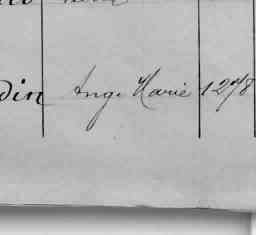 din Ange Marie 1278